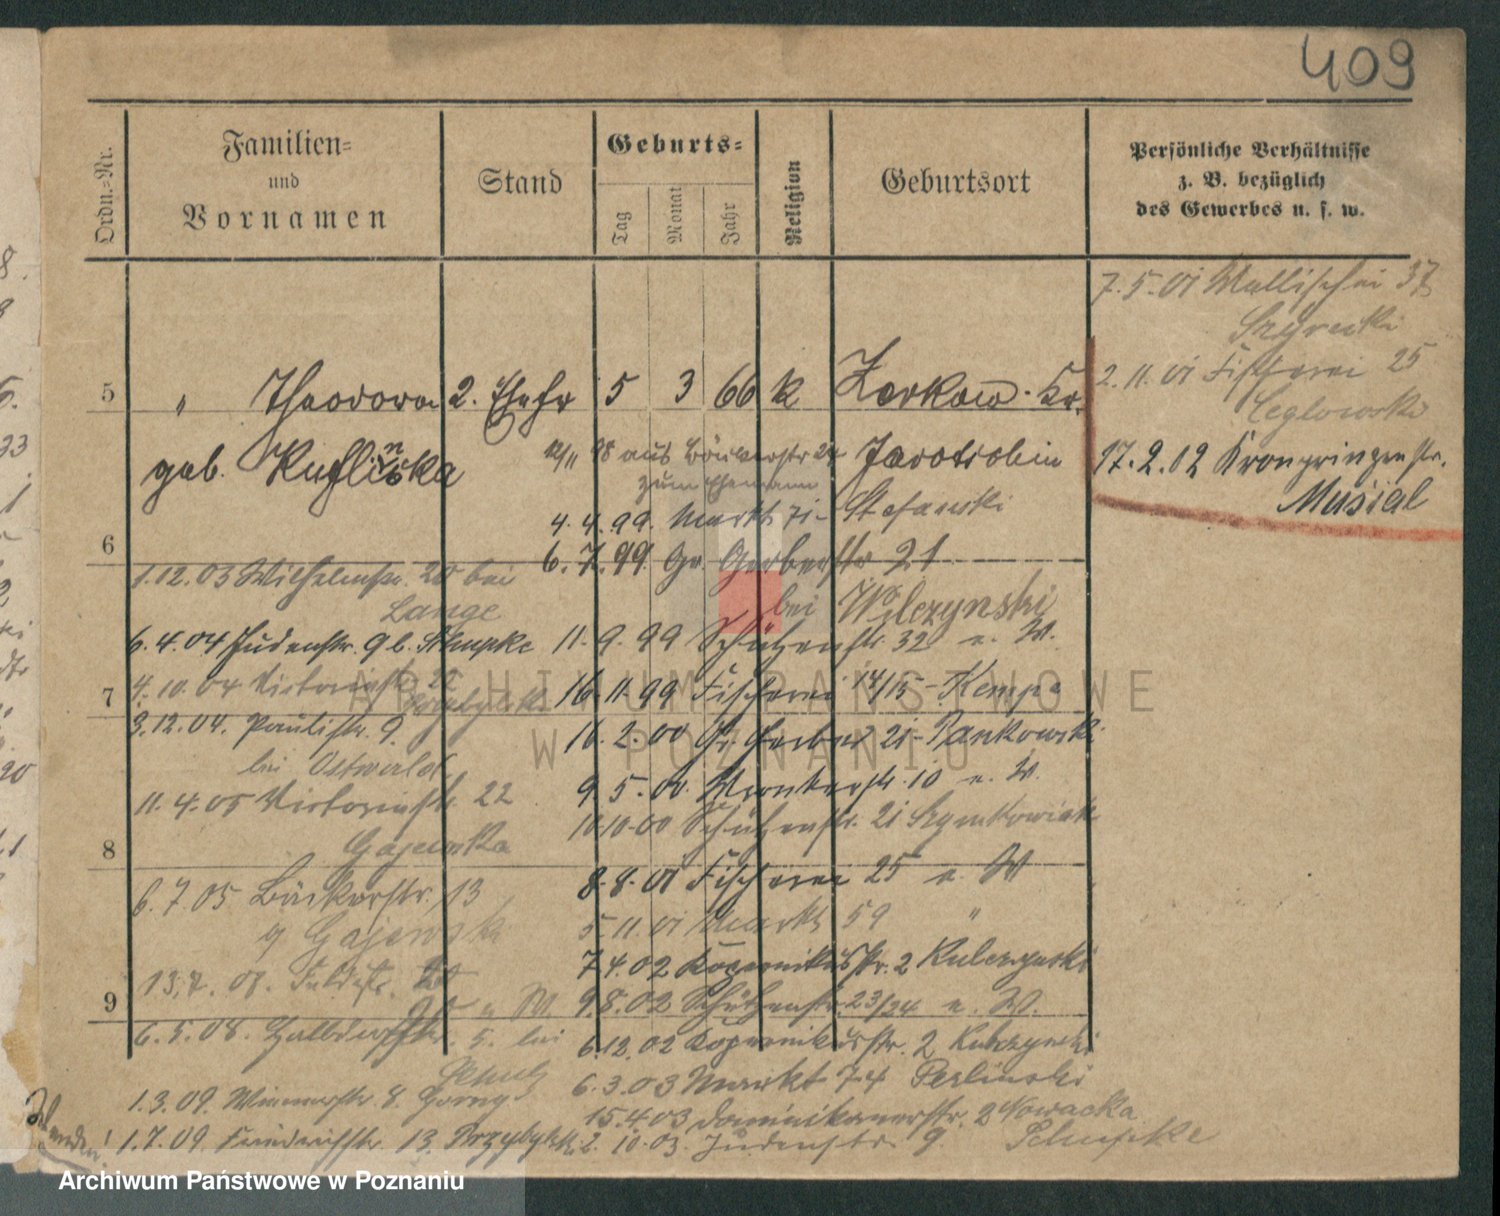 409
Ordn.-Nr.
Familien-
und
Vornamen
Stand
Geburts-
Tag
Monat
Jahr
Religion
Geburtsort
Persönliche Verhältnisse
z. B. bezüglich
des Gewerbes u. s. w.
7.5.01 Wallischei 37
2.11.01 Fischerei 25
Ceglowski
17.2.02 Kronprinzenstr.
Musial
5 " Theodora 2. Ehefr 5 3 66 k Zerkow. Kr.
geb. Kuflinska
Jarotschin
12/11 98 aus Bäckerstr 24
zum Ehemann
4.4.99. Markt 71- Stefanski
6
6.7.99 Gr. Gerberstr 21
bei Wilczynski
11.9.99 Schützenstr. 32 u. W.
16.11.99 Fischerei 14/15 - Kempa
16.2.00 Gr. Gerber 21- Pankowski
9.5.00 Wronkerstr. 10 u. W.
10.10.00 Schützenstr. 21 Szymkowiak
8.8.01 Fischerei 25 u. W
5.11.01 Markt 59 "
7.4.02 Kopernikusstr. 2 Kulczynski
9.8.02 Schützenstr. 23/24 u. W.
6.12.02 Kopernikusstr. 2 Kulczynski
6.3.03 Markt 74 Perlinski
15.4.03 Dominikanerstr. 2 Nowacka
2.10.03. Judenstr. 9. Schupke
1.12.03 Wilhelmstr. 20 bei
Lange
6.4.04 Judenstr. 9 b. Schupke
7
4.10.04 Victoriastr. 22
3.12.04. Paulistr. 9
bei Ostwald
11.4.05 Victoriastr. 22
Gajewska
8
6.7.05 Bäckerstr. 13
Gajewski
13.7.08. Feldstr.
9
6.5.08. Halbdorfstr. 5. bei
Schulz
1.3.09. Wienerstr. 8. Gorny
1.7.09. Friedrichstr. 13. Przybylsk
ARCHIWUM PAŃSTWOWE
W POZNANIU
Archiwum Państwowe w Poznaniu